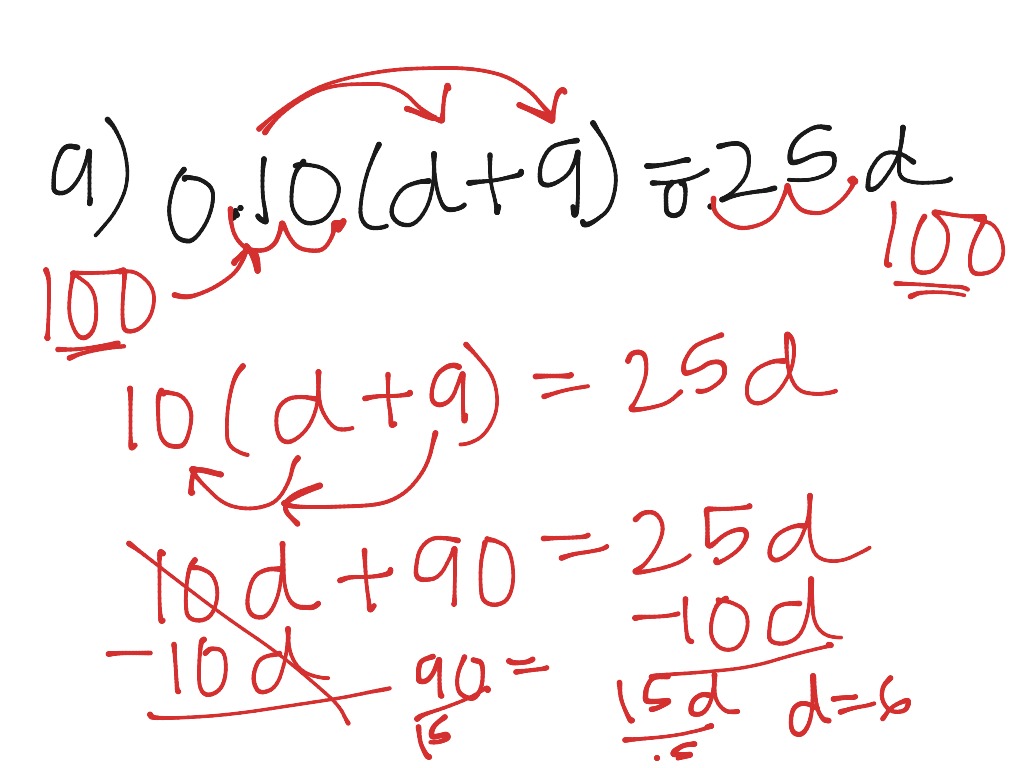 9) 0.10(d+9) = 0.25d
100 100
10(d+9) = 25d
10d + 90 = 25d
-10d -10d
90 = 15d d=6
15 15